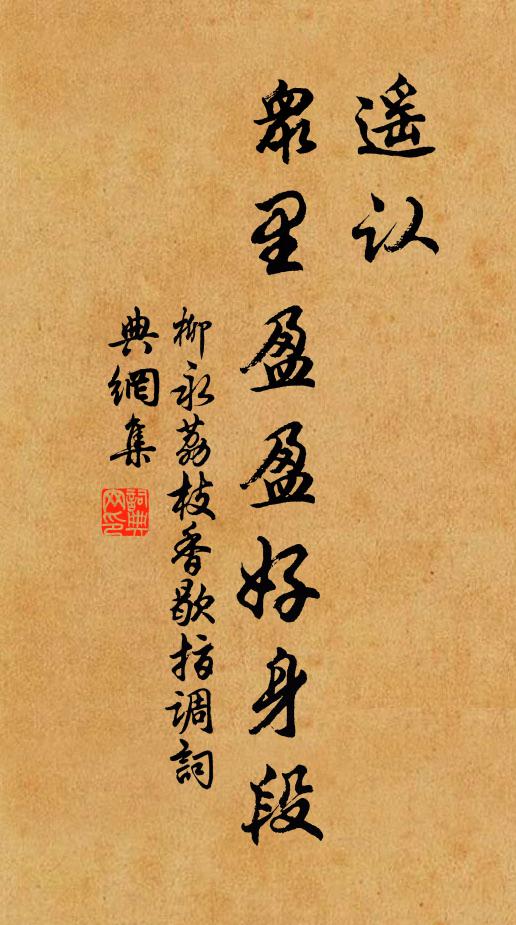 遥认
眾里盈盈好身段
柳永荔枝香歇指调詞
典網集
詞典网印